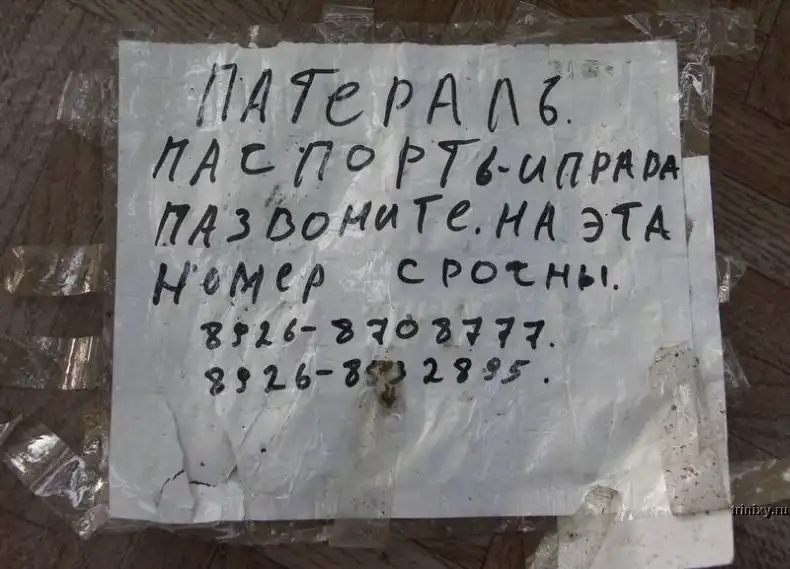 ПАТЕРАЛЬ.
ПАСПОРТЬ-ИПРАВА
ПАЗВОНИТЕ.НА ЭТА
НОМЕР СРОЧНЫ.
8926-8708777.
trinixy.ru